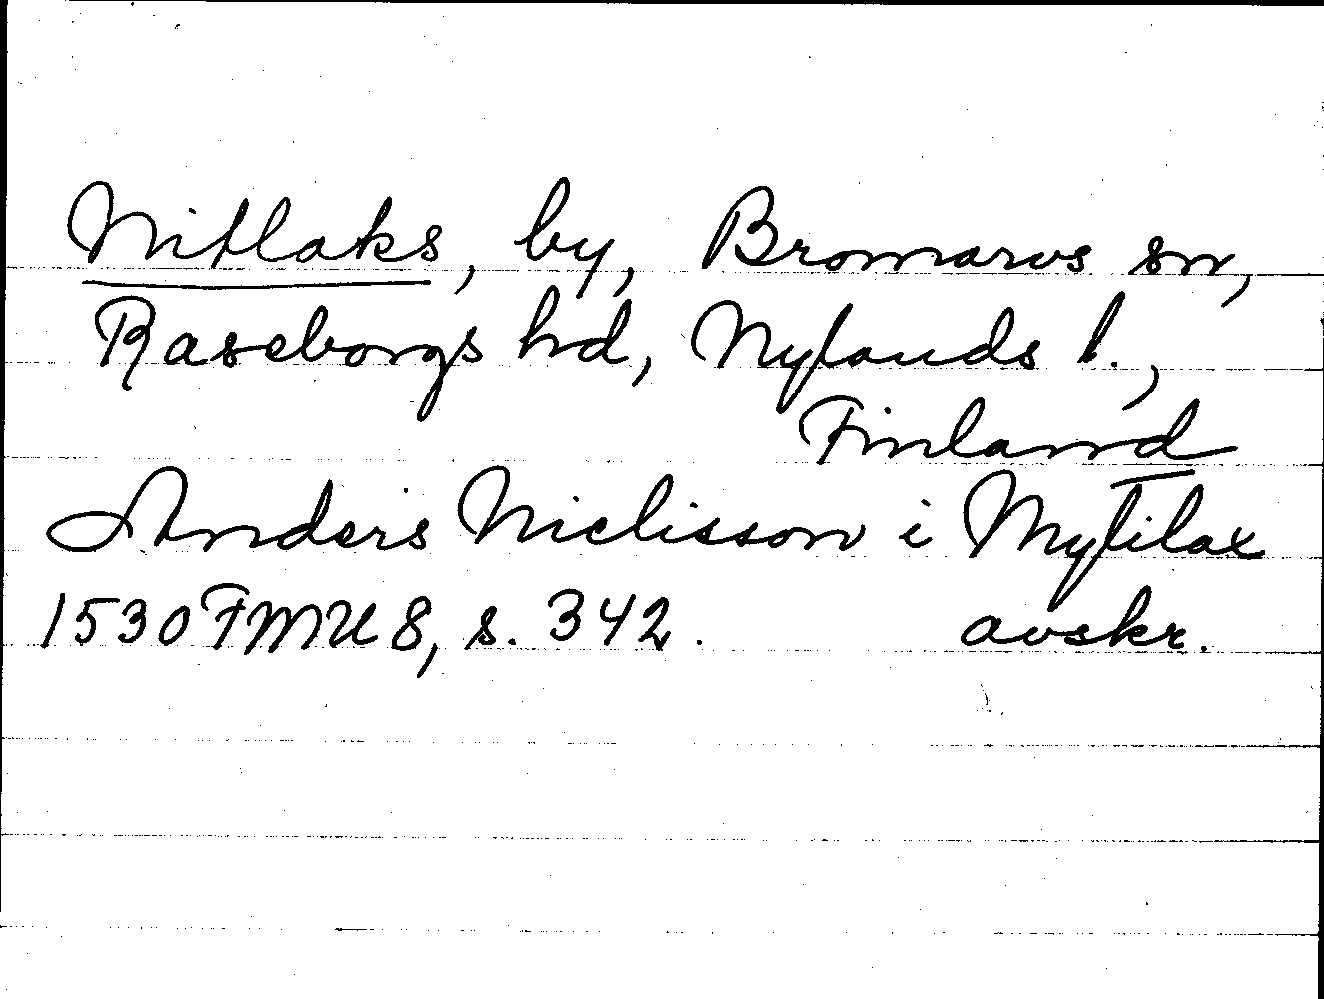 Nitlaks, by, Bromarvs sn,
Raseborgs hd, Nylands l.,
Finland
Anders Niclisson i Nytilax
1530 FMU 8, s. 342. avskr.